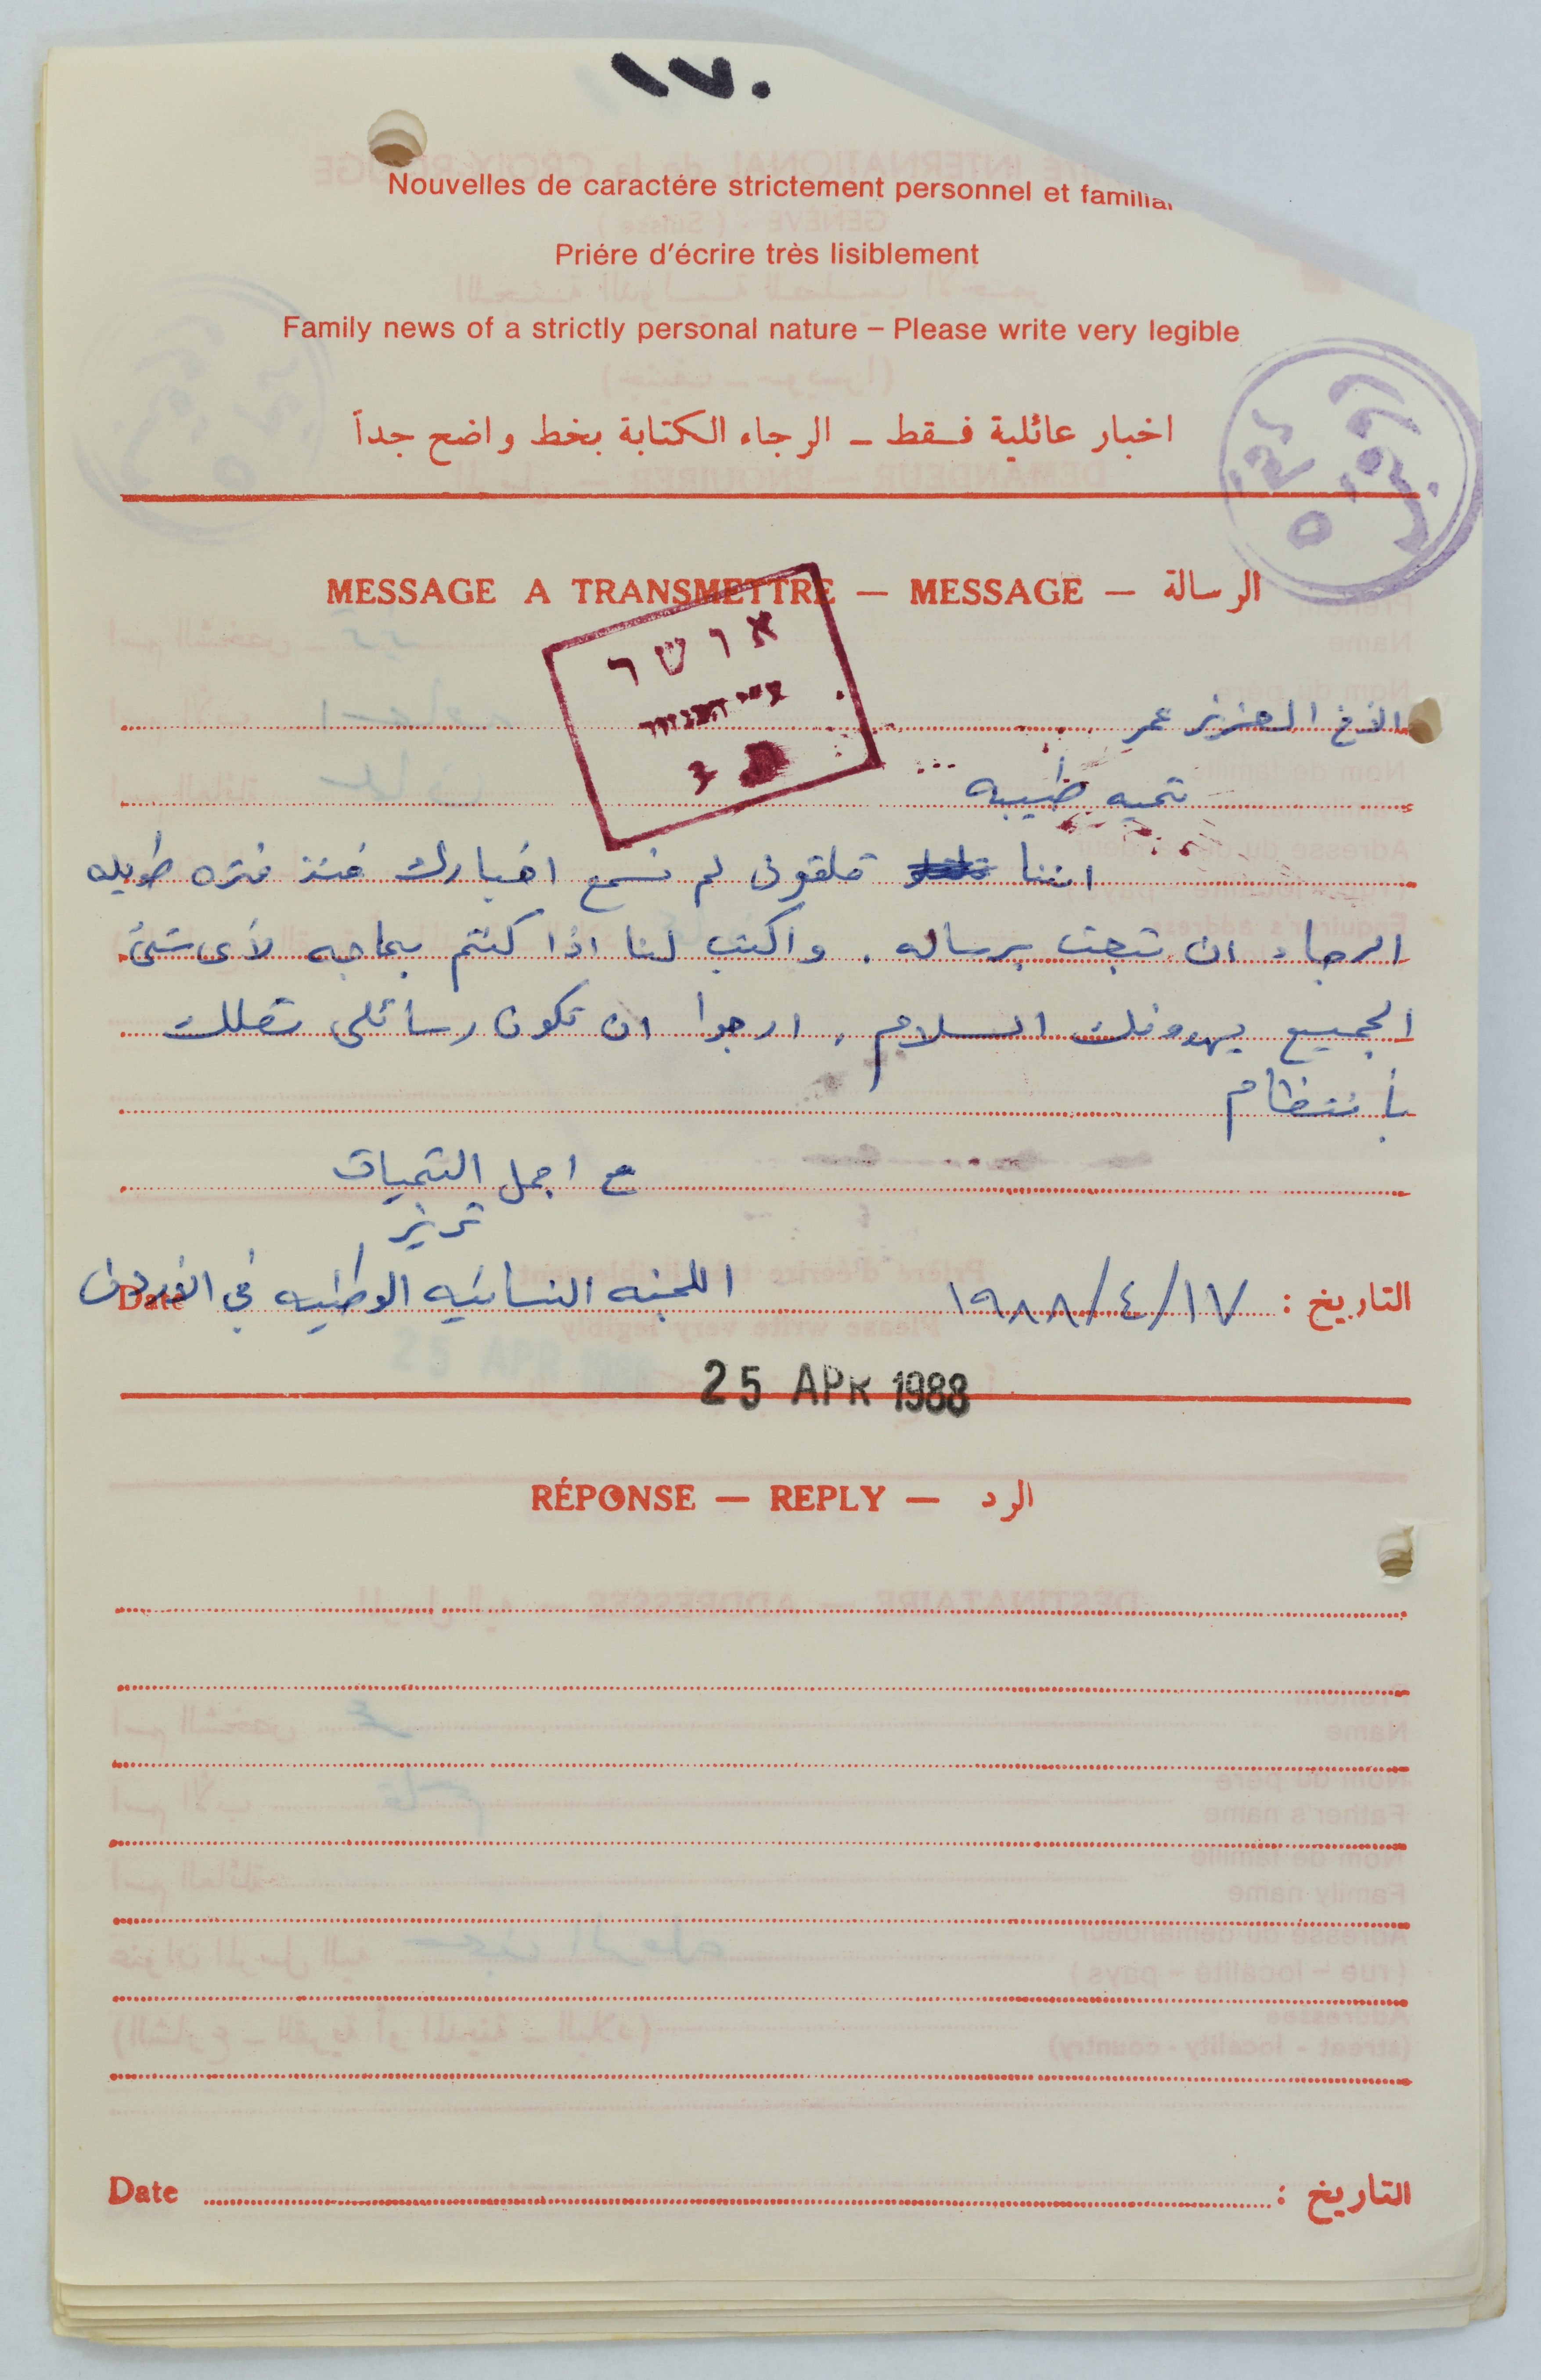 ١٧٠
Nouvelles de caractére strictement personnel et familial
Priére d'écrire très lisiblement
Family news of a strictly personal nature – Please write very legible
اخبار عائلية فقط – الرجاء الكتابة بخط واضح جداً
MESSAGE A TRANSMETTRE — MESSAGE — الرسالة
אושר
الأخ العزيز عمر
تحيه طيبه
اننا قلقون لم نسمع اخبارك منذ فتره طويله
الرجاء ان تبعث برساله . واكتب لنا اذا كنتم بحاجه لأى شئ
الجميع يهدونك السلام . ارجوا ان تكون رسائلى تصلك
بأنتظام
مع اجمل التحيات
اللجنه النسائيه الوطنيه في الاردن
التاريخ : ١٩٨٨/٤/١٧ Date
25 APR 1988
RÉPONSE — REPLY — الرد
التاريخ : Date